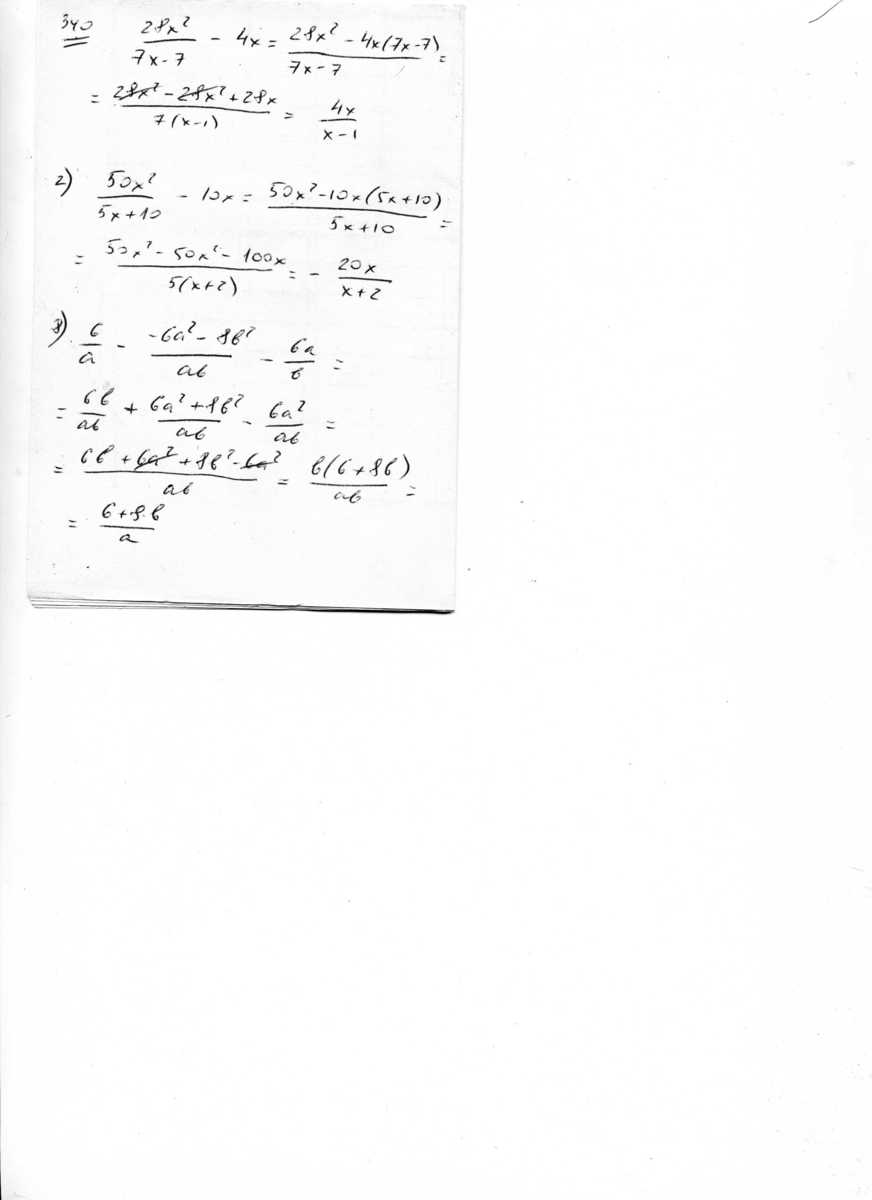 340 28x²/(7x-7) - 4x = (28x² - 4x(7x-7))/(7x-7) =
= (28x² - 28x² + 28x)/(7(x-1)) = 4x/(x-1)
2) 50x²/(5x+10) - 10x = (50x² - 10x(5x+10))/(5x+10) =
= (50x² - 50x² - 100x)/(5(x+2)) = - 20x/(x+2)
3) 6/a - (-6a² - 8в²)/(ав) - 6a/в =
= 6в/ав + (6a² + 8в²)/ав - 6a²/ав =
= (6в + 6a² + 8в² - 6a²)/ав = в(6 + 8в)/ав =
= (6 + 8в)/a